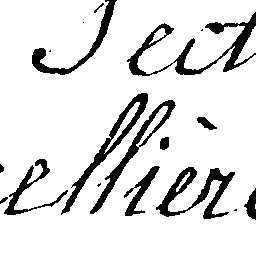 Tect
ellière